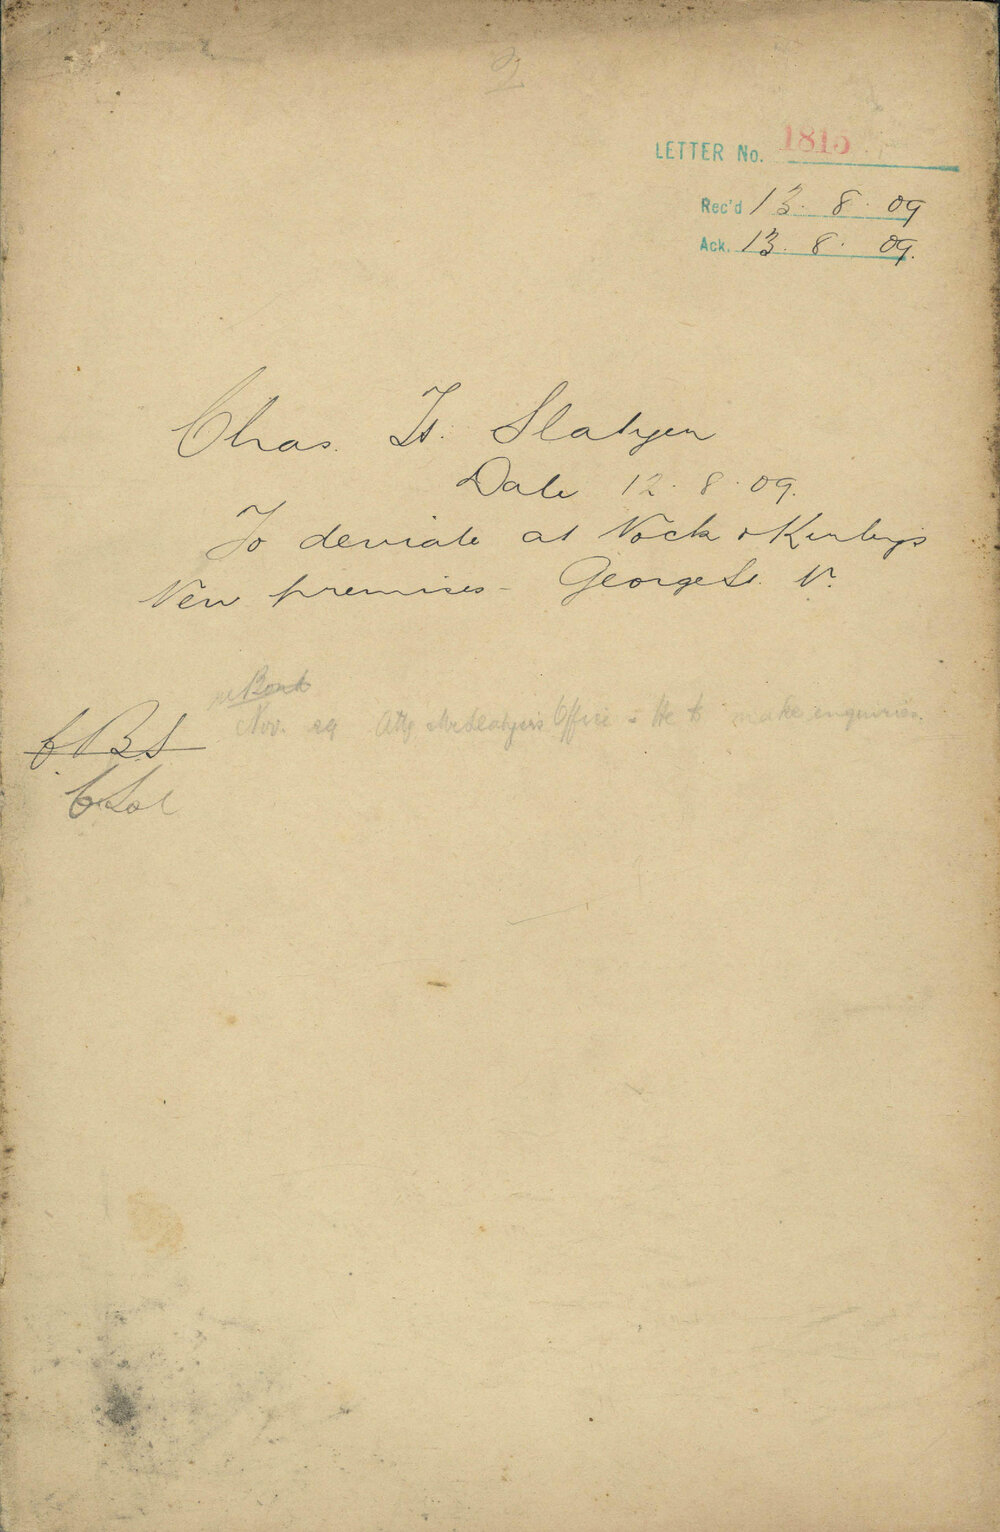 2
LETTER No. 1815
Rec'd 13. 8. 09
Ack. 13. 8. 09.
Chas. H. Slatyer
Date 12. 8. 09.
To deviate at Nock & Kirby's
New premises - George St. N.
Nov. 29 Mr Slatyer's Office - He to make enquiries.
CBS